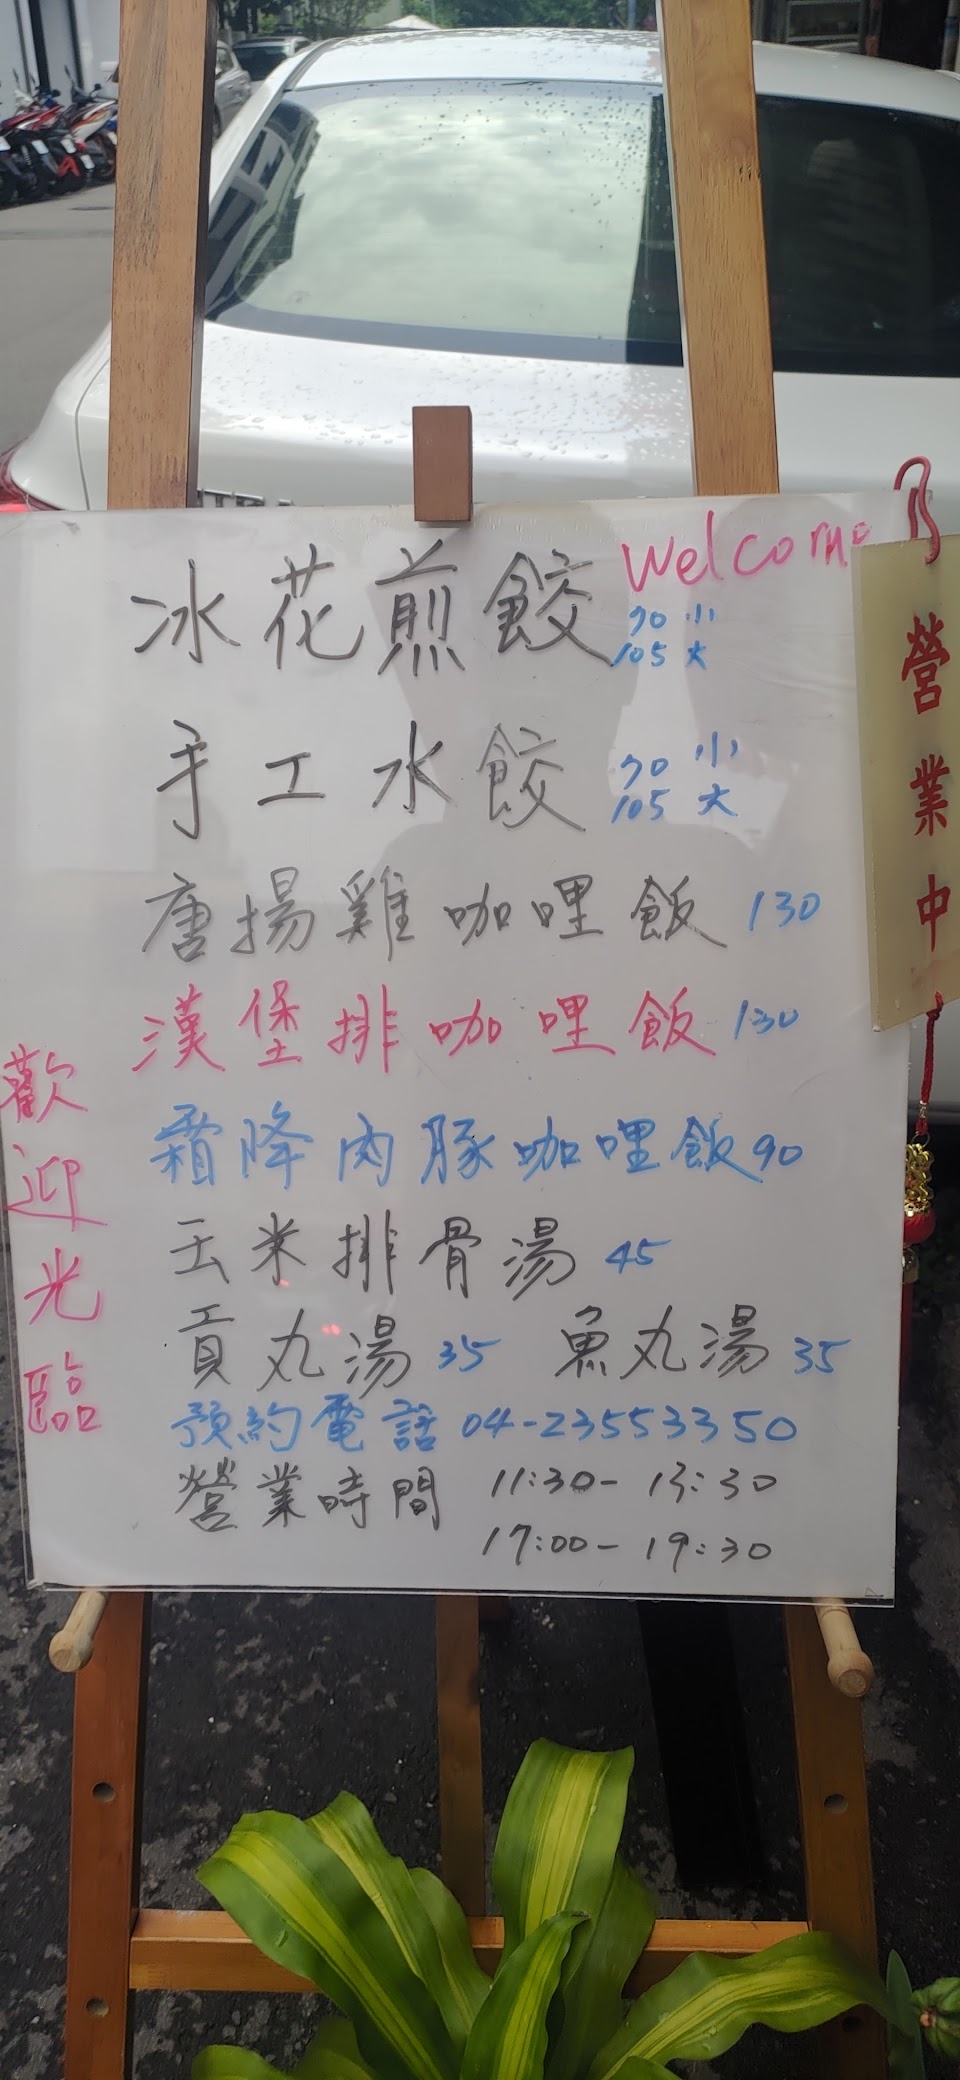 Welcome
冰花煎餃 70 小
105 大
手工水餃 70 小
105 大
唐揚雞咖哩飯 130
漢堡排咖哩飯 130
霜降肉豚咖哩飯 90
玉米排骨湯 45
貢丸湯 35 魚丸湯 35
預約電話 04-23553350
營業時間 11:30-13:30
17:00-19:30
歡迎光臨
營業中